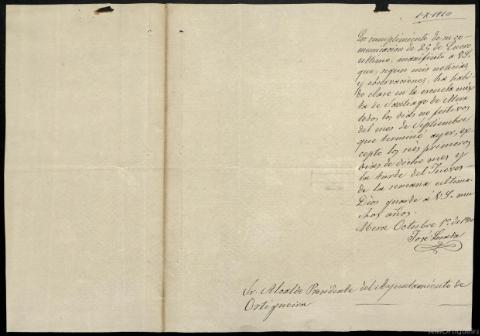 1-X-1910
En cumplimiento de su co-
municación de 25 de Enero
último, manifiesto a V.S.
que, según mis noticias
y observaciones, ha habi-
do clase en la escuela mix-
ta de Santiago de Mera
todos los días no festivos
del mes de Septiembre
que terminó ayer, ex-
cepto los seis primeros
días de dicho mes y
la tarde del Jueves
de la semana última.
Dios guarde a V.S. mu-
chos años.
Mera Octubre 1º de 1910
José
Sr. Alcalde Presidente del Ayuntamiento de
Ortigueira